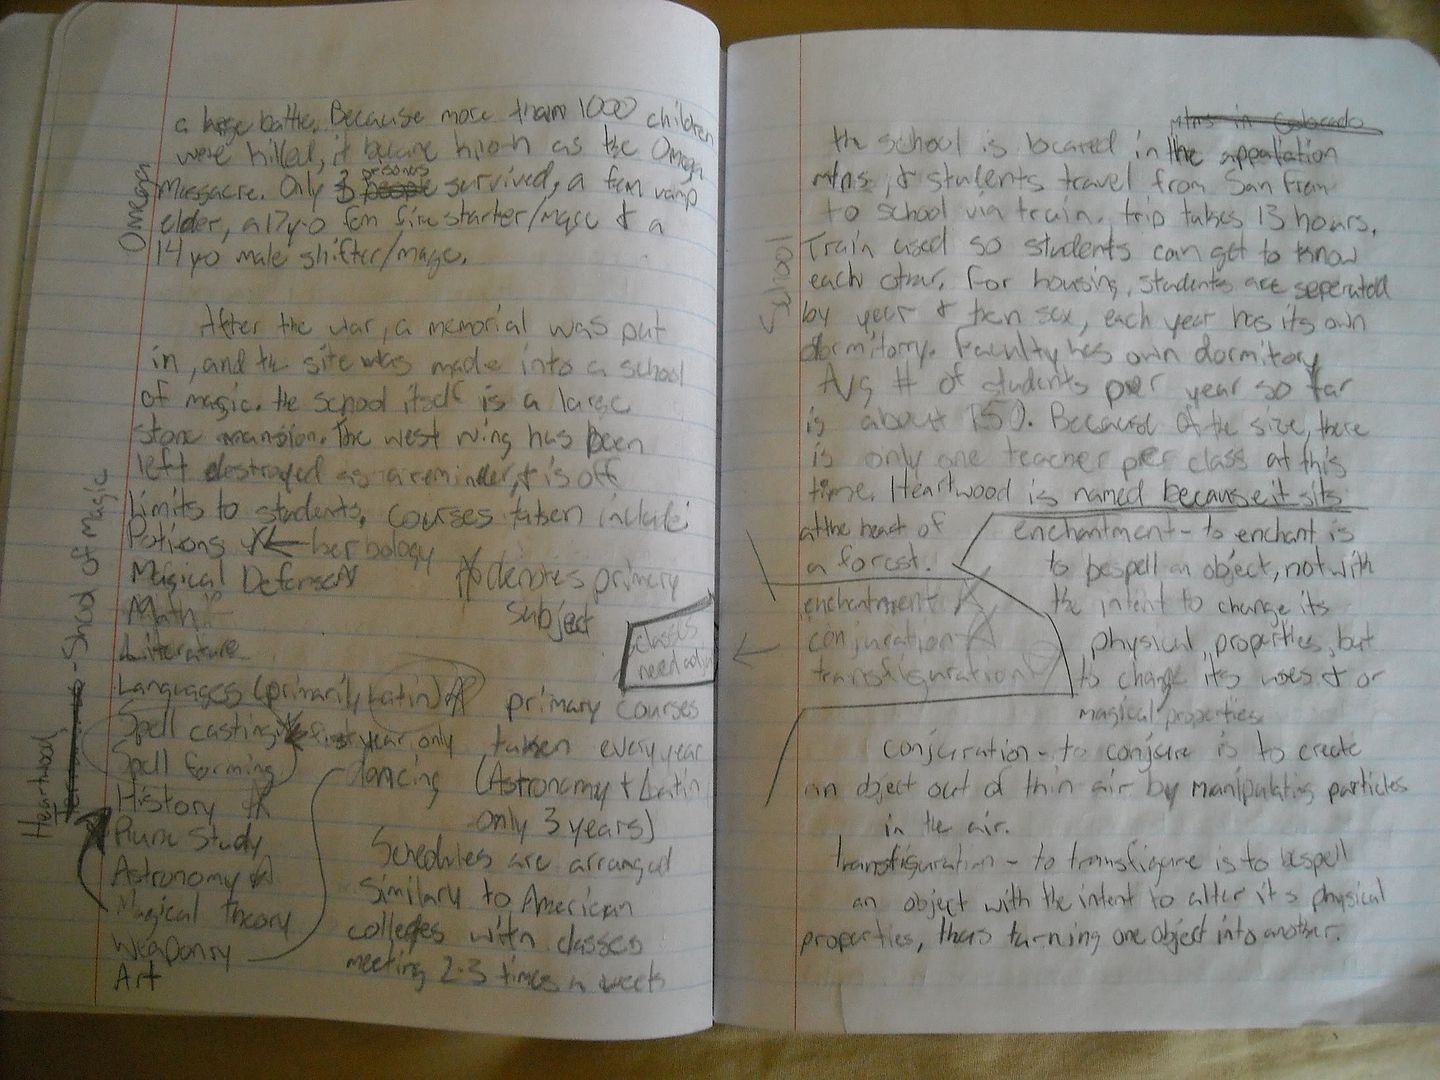 a huge battle. Because more than 1000 children
were killed, it became known as the Omega
Massacre. Only 3 persons survived, a fem vamp
elder, a 17 y-o fem fire starter/mage & a
14 yo male shifter/mage.
Omega
After the war, a memorial was put
in, and the site was made into a school
of magic. the school itself is a large
stone mansion. The west wing has been
left destroyed as a reminder, & is off
limits to students. courses taken include:
Potions ← herbology
Magical Defense
Math
Literature
denotes primary
subject
classes
need
Languages (primarily Latin)
Spell casting first year only
Spell forming
History
Rune Study
Astronomy
Magical Theory
Weaponry
Art
dancing
primary courses
taken every year
(Astronomy & Latin
only 3 years)
Schedules are arranged
similary to American
colleges with classes
meeting 2-3 times a week
Heartwood - School of magic
mtns in Colorado
the school is located in the appalation
mtns, & students travel from San Fran
to school via train. trip takes 13 hours.
Train used so students can get to know
each other. For housing, students are seperated
by year & then sex, each year has its own
dormitory. Faculty has own dormitory
Avg # of students per year so far
is about 150. Because of the size, there
is only one teacher per class at this
time. Heartwood is named because it sits
at the heart of
a forest.
School
enchantment
conjuration
transfiguration
enchantment - to enchant is
to bespell an object, not with
the intent to change its
physical properties, but
to change it's uses & or
magical properties
conjuration - to conjure is to create
an object out of thin air by manipulating particles
in the air.
transfiguration - to transfigure is to bespell
an object with the intent to alter it's physical
properties, thus turning one object into another.